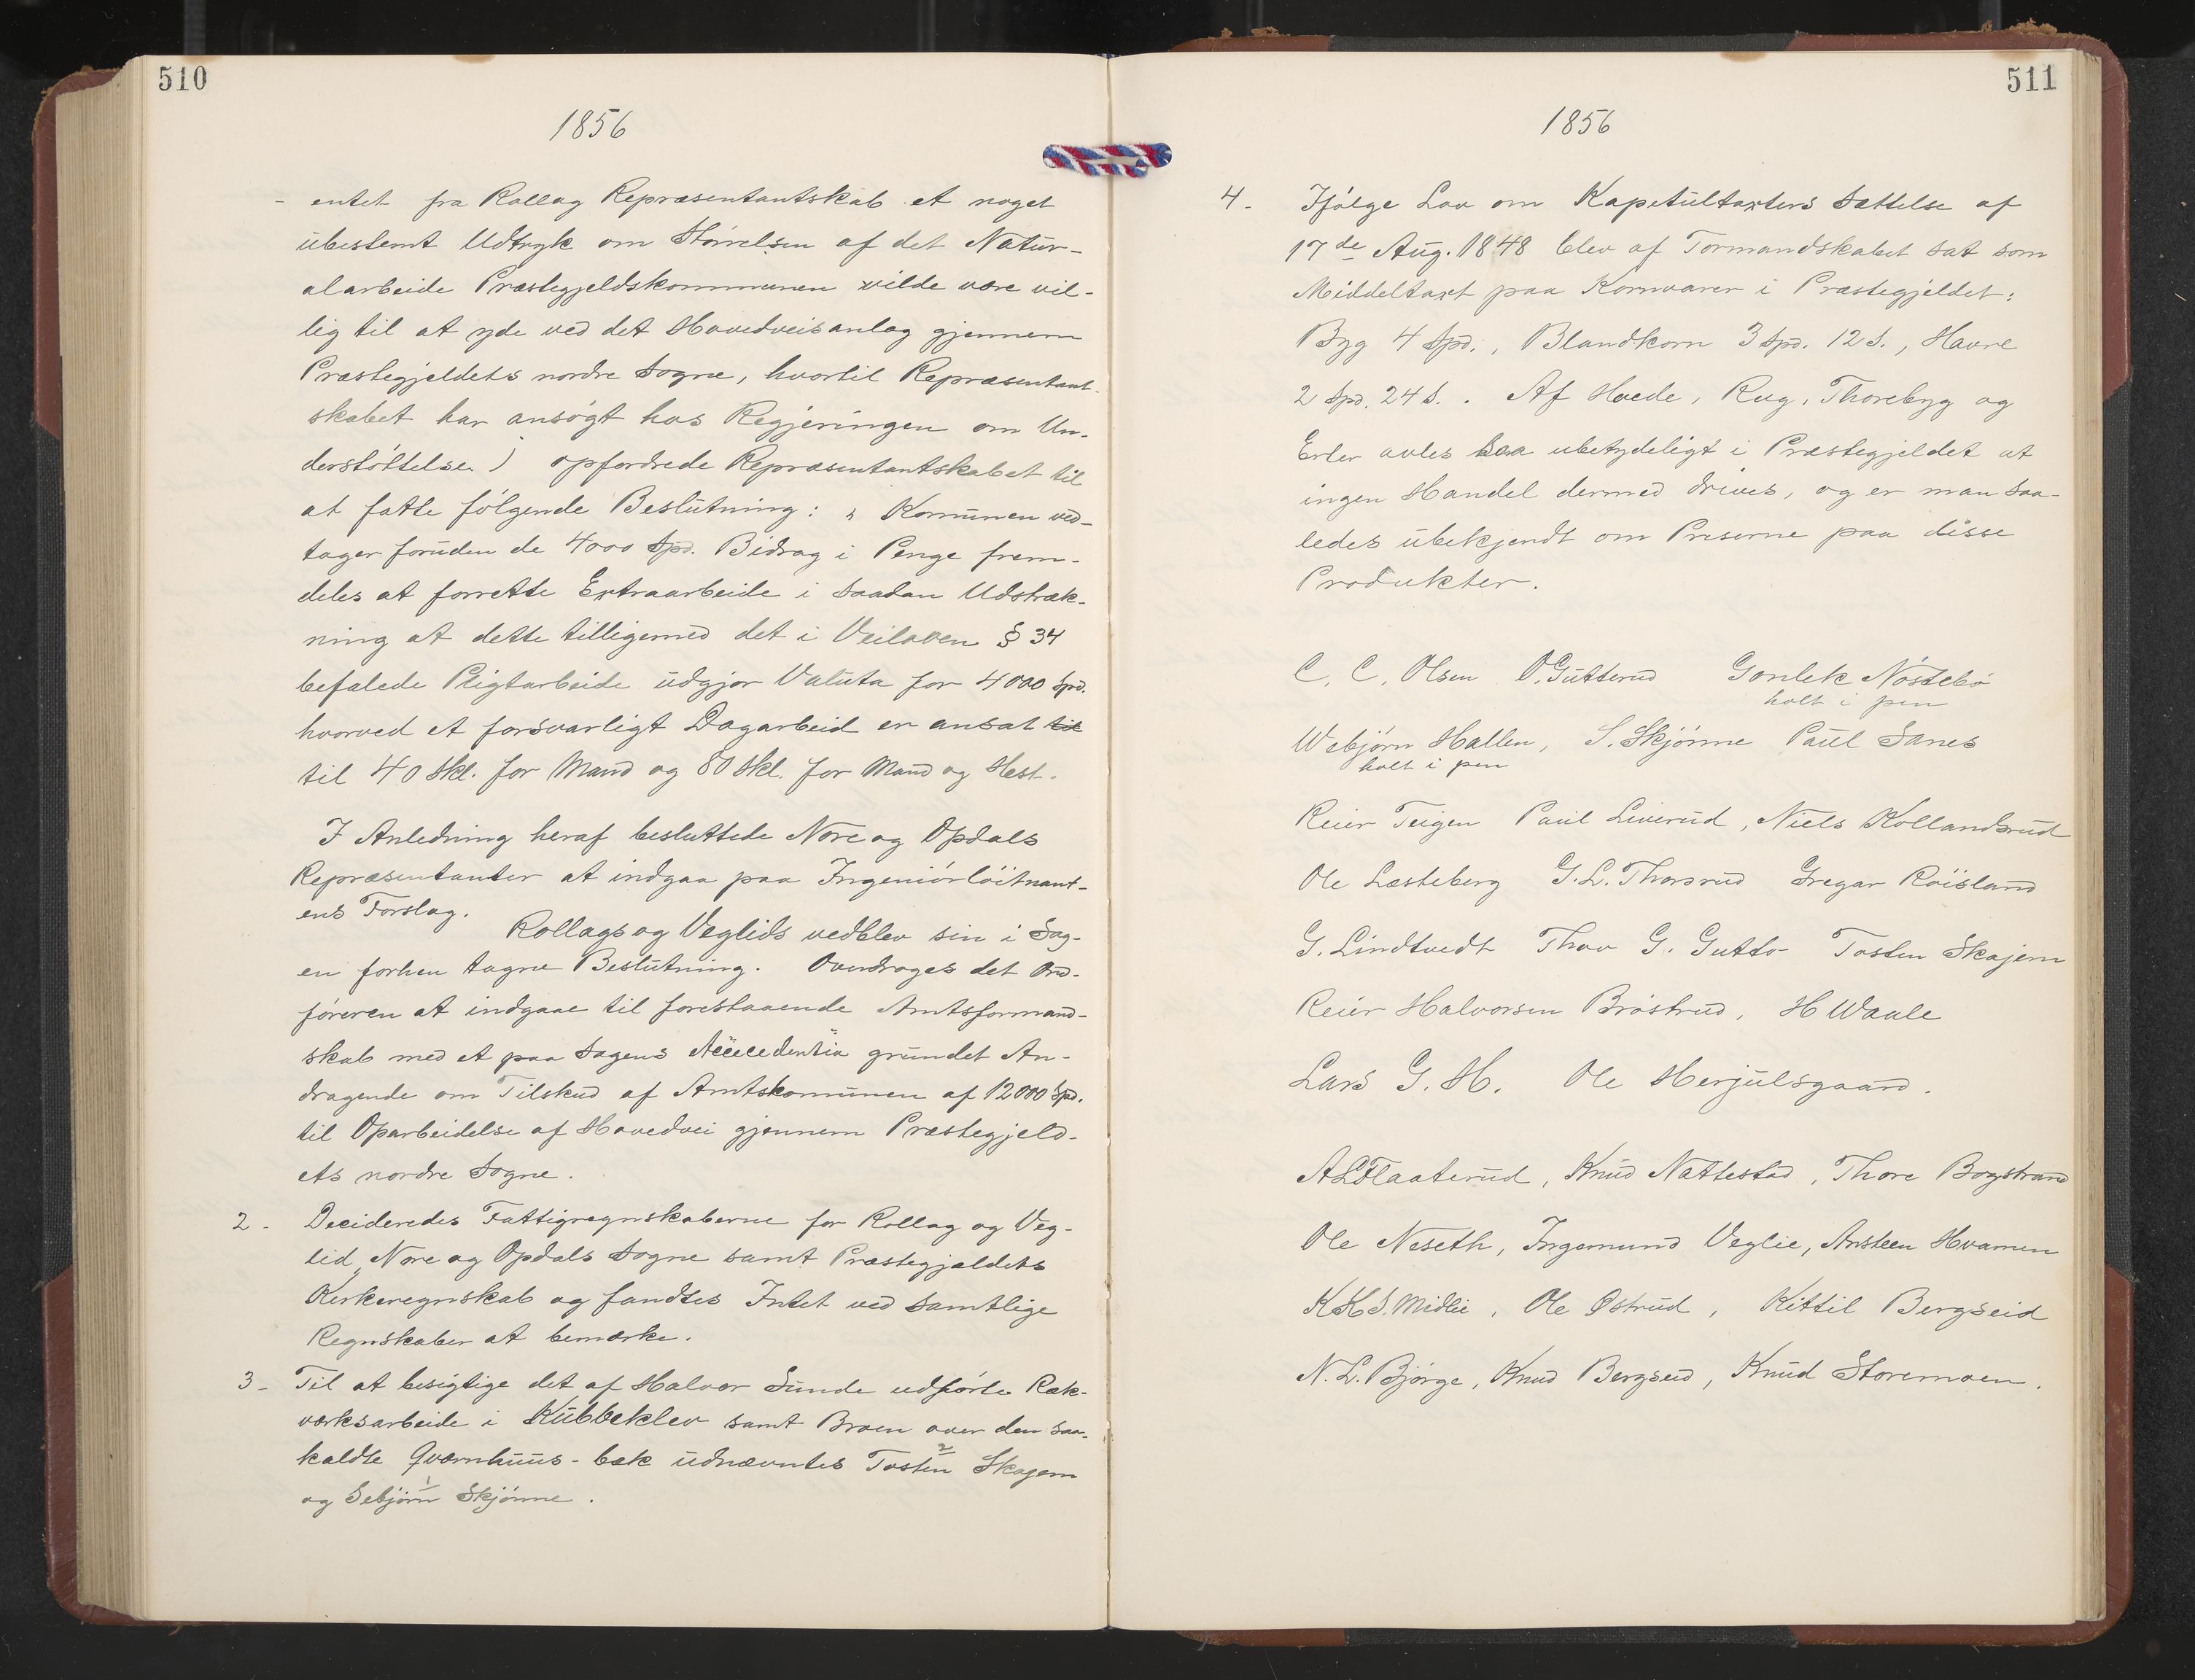 510
1856
- entet fra Rollag Repræsentantskab et noget
ubestemt Udtryk om Størrelsen af det Natur-
alarbeide Præstegjeldskommunen vilde være vil-
lig til at yde ved det Hovedveisanlæg gjennem
Præstegjeldets nordre Sogne, hvortil Repræsentant-
skabet har ansøgt hos Regjeringen om Un-
derstøttelse.) opfordrede Repræsentantskabet til
at fatte følgende Beslutning: „ Komunen ved-
tager foruden de 4000 Spd. Bidrag i Penge frem-
deles at forrette Extraarbeide i saadan Udstræk-
ning at dette tilligemed det i Veiloven § 34
befalede Pligtarbeide udgjør Valuta for 4000 Spd.
hvorved et forsvarligt Dagarbeid er ansat til
til 40 Skl. for Mand og 80 Skl. for Mand og Hest.
I Anledning heraf besluttede Nore og Opdals
Repræsentanter at indgaa paa Ingeniørløitnant-
ens Forslag.
Rollags og Veglids vedblev sin i Sag-
en forhen tagne Beslutning. Overdroges det Ord-
føreren at indgaae til forestaaende Amtsformand-
skab med et paa Sagens grundet An-
dragende om Tilskud af Amtskomunen af 12000 Spd.
til Oparbeidelse af Hovedvei gjennem Præstegjeld-
ets nordre Sogne.
2 - Decideredes Fattigregnskaberne for Rollag og Veg-
lid, Nore og Opdals Sogne samt Præstegjældets
Kirkeregnskab og fandtes Intet ved samtlige
Regnskaber at bemærke.
3 - Til at besigtige det af Halvor Sunde udførte Ræk-
værksarbeide i Kubbeklev samt Broen over den saa-
kaldte Qværnhuus-bæk udnævntes Tosten 2 Skajem
og Sebjørn 1 Skjønne.
511
1856
4 - Ifølge Lov om Kapitultaxters Sættelse af
17de Aug. 1848 blev af Formandskabet sat som
Middeltaxt paa Kornvarer i Præstegjeldet:
Byg 4 Spd., Blandkorn 3 Spd. 12 S., Havre
2 Spd. 24 S.. Af Hvede, Rug, Thorebyg og
Erter avles saa ubetydeligt i Præstegjeldet at
ingen Handel dermed drives, og er man saa-
ledes ubekjendt om Priserne paa disse
Produkter.
C. C. Olsen O. Gutterud Gonlek Nøstebø
holt i pen
Webjørn Hallen, S. Skjønne Paul Sanes
holt i pen
Reier Teigen Paul Liverud, Niels Kollandsrud
Ole Læsteberg G. L. Thorsrud Gregar Røisland
G. Lindtvedt Thov G. Gutto Tosten Skajem
Reier Halvorsen Brøstrud, H Waale
Lars G. H. Ole Herjulsgaard.
A L Flaaterud, Knud Nattestad, Thore Bogstrand
Ole Neseth, Ingemund Veglie, Ansteen Hvamen
K H S. Midlie, Ole Østrud, Kittil Bergseid
N. L. Bjørge, Knud Bergseid, Knud Storemoen.